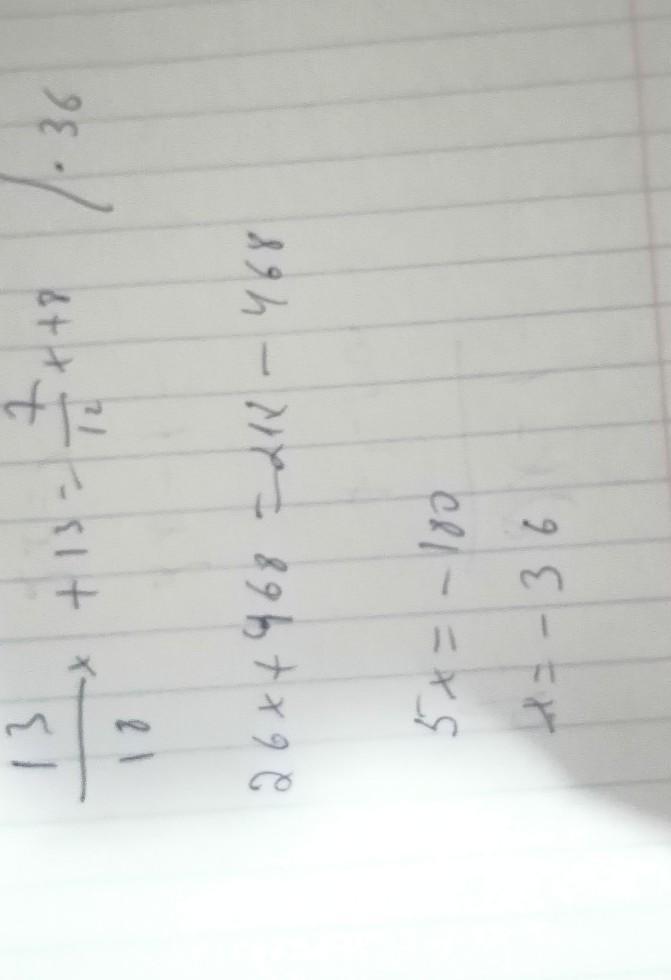 13/18 x + 13 = 7/12 x + 8 /. 36
26x + 468 = 21x - 468
5x = -180
x = -36